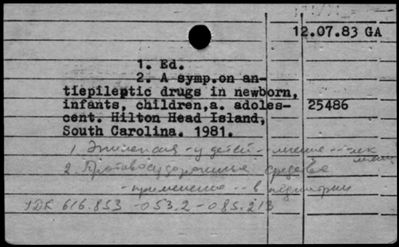 12.07.83 GA
1. Ed.
2. A symp.on an-
tiepileptic drugs in newborn,
infants, children,a. adoles-
cent. Hilton Head Island,
South Carolina. 1981.
25486
1. Эпилепсия - у детей - лечение --лек
2. Противосудорожные средства
- применение -- в педиатрии
УДК 616.853 -053.2 -085.213